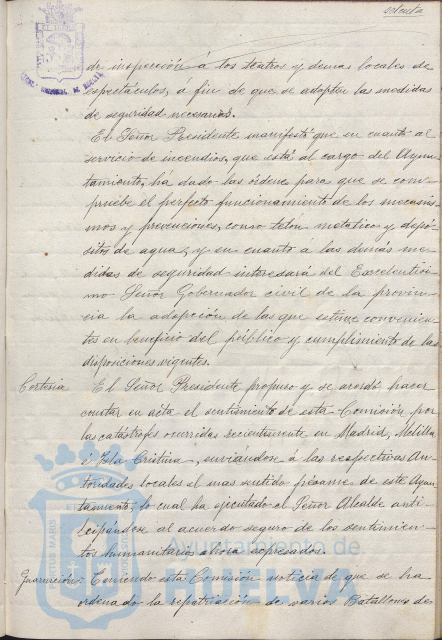 setenta
de inspección á los teatros y demas locales de
espectáculos, á fin de que se adopten las medidas
de seguridad necesarias.
El Señor Presidente manifestó que en cuanto al
servicio de incendios, que está al cargo del Ayun-
tamiento, ha dado las órdenes para que se com-
pruebe el perfecto funcionamiento de los mecanis-
mos y prevenciones, como telón metalico y depó-
sitos de agua, y en cuanto á las demás me-
didas de seguridad interesará del Excelentísi-
mo Señor Gobernador civil de la provin-
cia la adopción de las que estime convenien-
tes en beneficio del público y cumplimiento de las
disposiciones vigentes.
Cortesia El Señor Presidente propuso y se acordó hacer
constar en acta el sentimiento de esta Comisión por
las catástrofes ocurridas recientemente en Madrid, Melilla
é Isla Cristina, enviandose á las respectivas Au-
toridades locales el mas sentido pésame de este Ayun-
tamiento, lo cual ha ejecutado el Señor Alcalde anti-
cipándose al acuerdo seguro de los sentimien-
tos humanitarios ahora expresados.
Guarnición. Teniendo esta Comisión noticia de que se ha
ordenado la repatriación de varios Batallones de
Ayuntamiento de
HUELVA